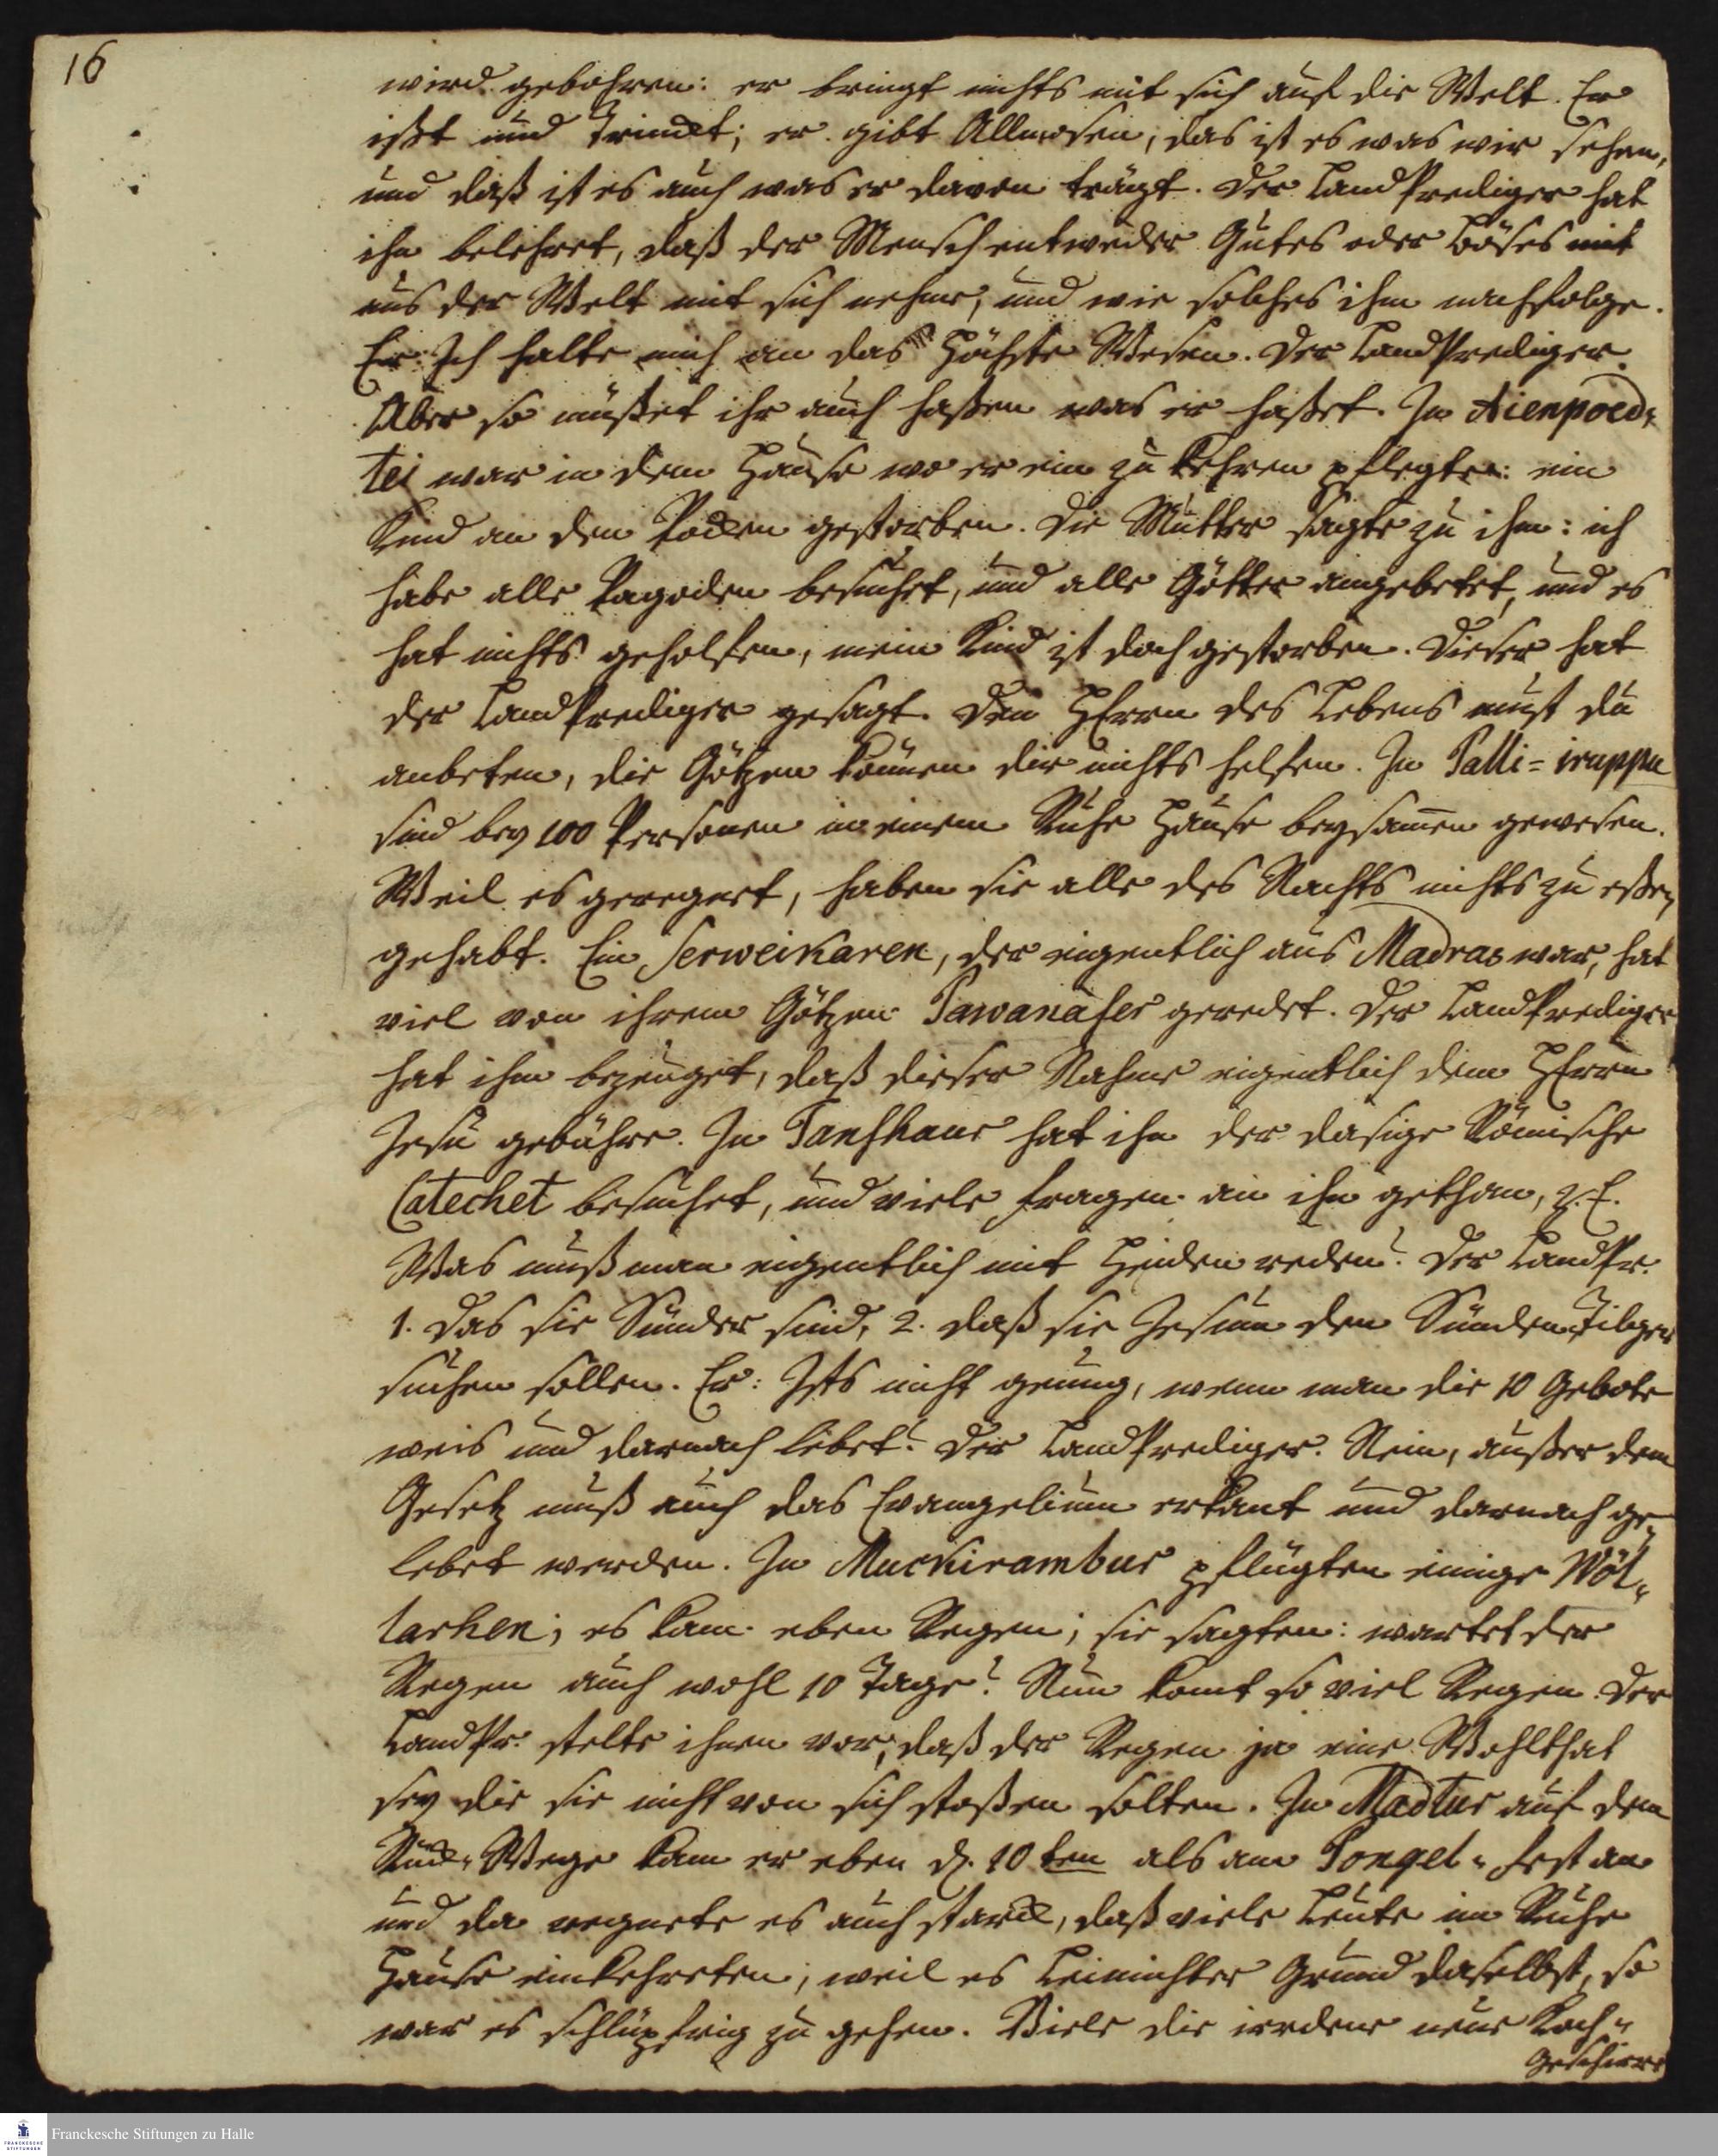 16
wird gebohren: er bringt nichts mit sich auf die Welt. Er
ißt und trinckt; er gibt Allmosen, das ist es was wir sehen,
und daß ist es auch was er davon trägt. Der LandPrediger hat
ihn belehret, daß der Mensch entweder Gutes oder Böses mit
aus der Welt mit sich nehme, und wie solches ihm nachfolge.
Er: Ich halte mich an das Höchste Wesen. Der LandPrediger.
Aber so müßet ihr auch haßen was er haßet. In Aienpoed-
tei war in dem Hause wo er ein zu kehren pflegte: ein
Kind an den Pocken gestorben. Die Mutter sagte zu ihm: ich
habe alle Pagoden besuchet, und alle Götter angebetet, und es
hat nichts geholfen, mein Kind ist doch gestorben. Dieser hat
der LandPrediger gesagt. Den HErrn des Lebens must du
anbeten, die Götzen können dir nichts helfen. In Palli=iruppu
sind bey 100 Personen in einem Ruhe Hause beysamen gewesen.
Weil es geregnet, haben sie alle des Nachts nichts zu eßen
gehabt. Ein Serweikaren, der eigentlich aus Madras war, hat
viel von ihrem Götzen Pawanaser geredet. Der LandPrediger
hat ihm bezeuget, daß dieser Nahme eigentlich dem HErrn
Jesu gebühre. In Tanshaur hat ihn der dasige Römische
Catechet besuchet, und viele Fragen an ihn gethan, z. E.
Was muß man eigentlich mit Heiden reden? Der LandPr.
1. Das sie Sünder sind, 2. daß sie Jesum den Sünden Tilger
suchen sollen. Er: Ists nicht genung, wenn man die 10 Gebote
weis und darnach lebet? Der LandPrediger. Nein, außer dem
Gesetz muß auch das Evangelium erkant und darnach ge-
lebet werden. In Muckirambur pflügten einige Wöl-
larhen; es kam eben Regen; sie sagten: wartet der
Regen auch wohl 10 Tage? Nun komt so viel Regen. Der
LandPr. stelte ihnen vor, daß der Regen ja eine Wohlthat
sey die sie nicht von sich stoßen solten. In Madtur auf dem
Rück-Wege kam er eben d. 10 ten als am Pongel-Fest an
und da regnete es auch starck, daß viele Leute im Ruhe
Hause einkehreten; weil es leimichter Grund daselbst, so
war es schlüpfrig zu gehen. Viele die irrdene neue Koch-
geschirre
Franckesche Stiftungen zu Halle